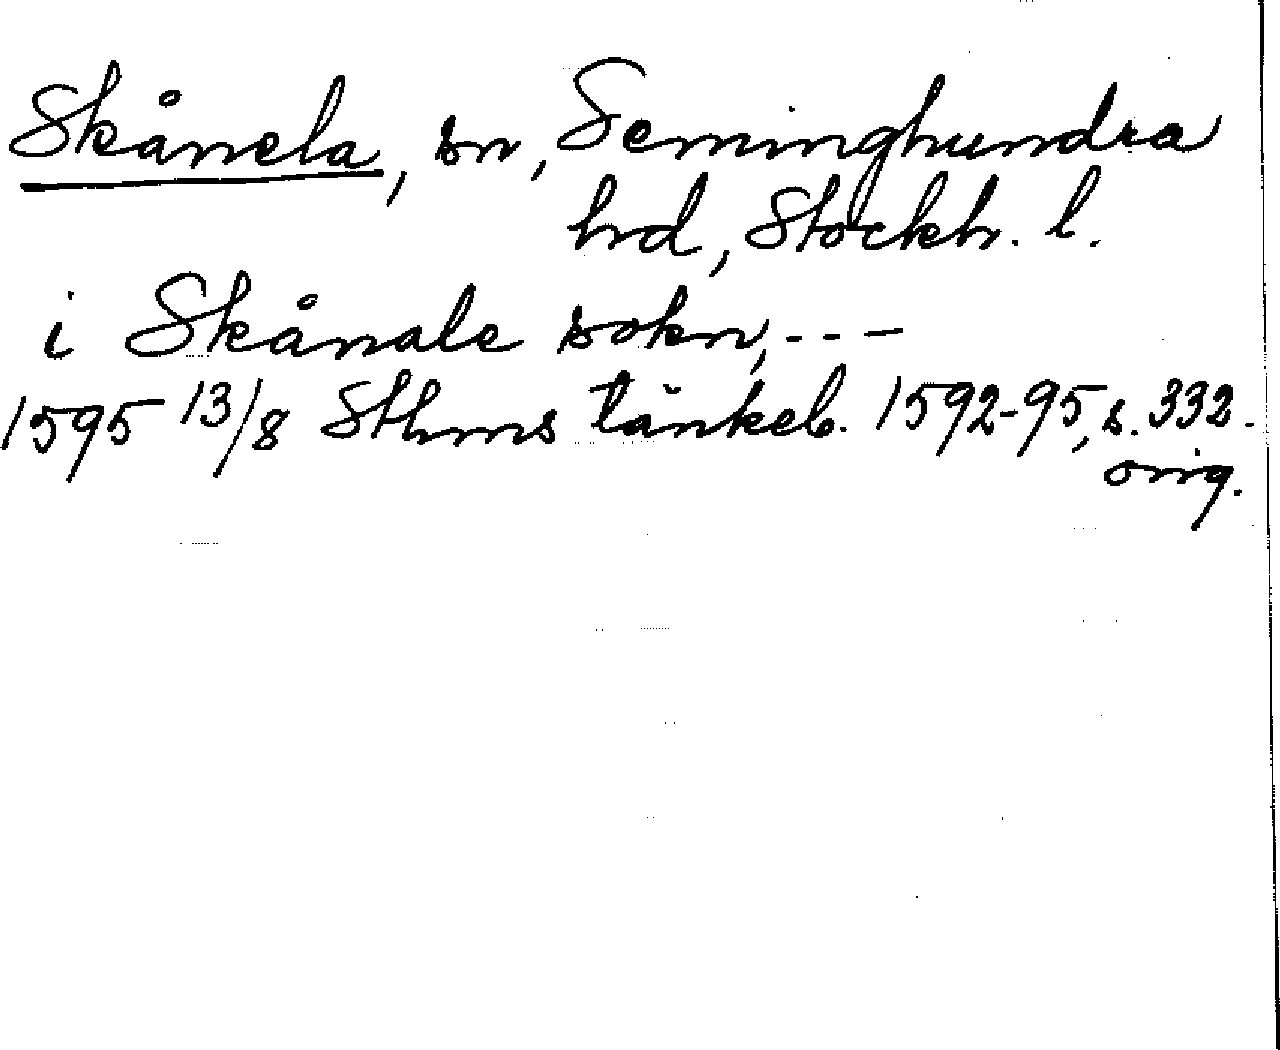 Skånela, sn, Seminghundra
hrd, Stockh. l.
i Skånale sokn, - - -
1595 13/8 Sthms tänkeb. 1592-95, s. 332.
orig.